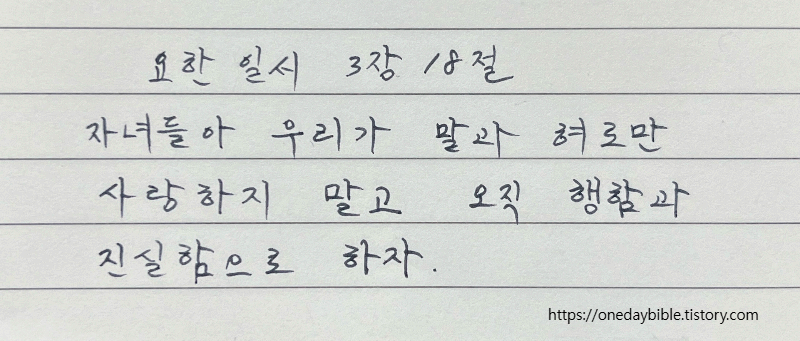 요한 일서 3장 18절
자녀들아 우리가 말과 혀로만
사랑하지 말고 오직 행함과
진실함으로 하자.
https://onedaybible.tistory.com